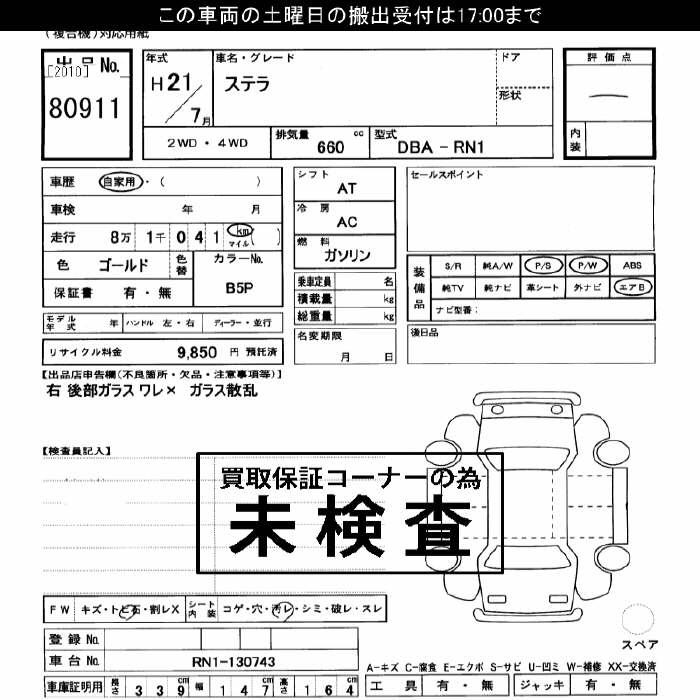 この車両の土曜日の搬出受付は17:00まで
(複合機)対応用紙
出品 No.
[2010]
80911
年式
H21/7月
車名・グレード
ステラ
ドア
形状
評価点
内装
2WD・4WD
排気量 cc
660
型式
DBA-RN1
車歴 自家用・( )
車検 年 月
走行 8万 1千 0 4 1 km マイル ( )
色 ゴールド
色替
カラーNo.
B5P
保証書 有・無
モデル年式 年
ハンドル 左・右
ディーラー・並行
リサイクル料金 9,850 円 預託済
シフト
AT
冷房
AC
燃料
ガソリン
乗車定員 名
積載量 kg
総重量 kg
名変期限
月 日
セールスポイント
装備品
S/R 純A/W P/S P/W ABS
純TV 純ナビ 革シート 外ナビ エアB
ナビ型番:
後日品
【出品店申告欄(不良箇所・欠品・注意事項等)】
右 後部ガラス ワレ× ガラス散乱
【検査員記入】
買取保証コーナーの為
未検査
FW キズ・トビ石・割レX
シート内装 コゲ・穴・汚レ・シミ・破レ・スレ
登録 No.
車台 No. RN1-130743
車庫証明用 長さ 3 3 9 cm 幅 1 4 7 cm 高さ 1 6 4 cm
スペア
A-キズ C-腐食 E-エクボ S-サビ U-凹ミ W-補修 XX-交換済
工具 有・無 ジャッキ 有・無